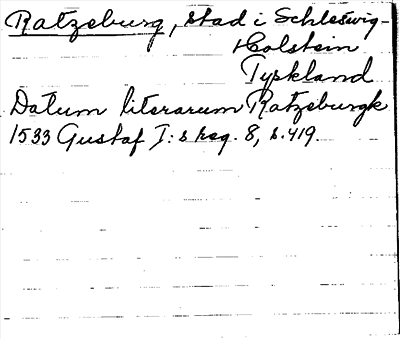 Ratzeburg, stad i Schleswig-
Holstein
Tyskland
Datum literarum Ratzeburgk
1533 Gustaf I:s reg. 8, s. 419.